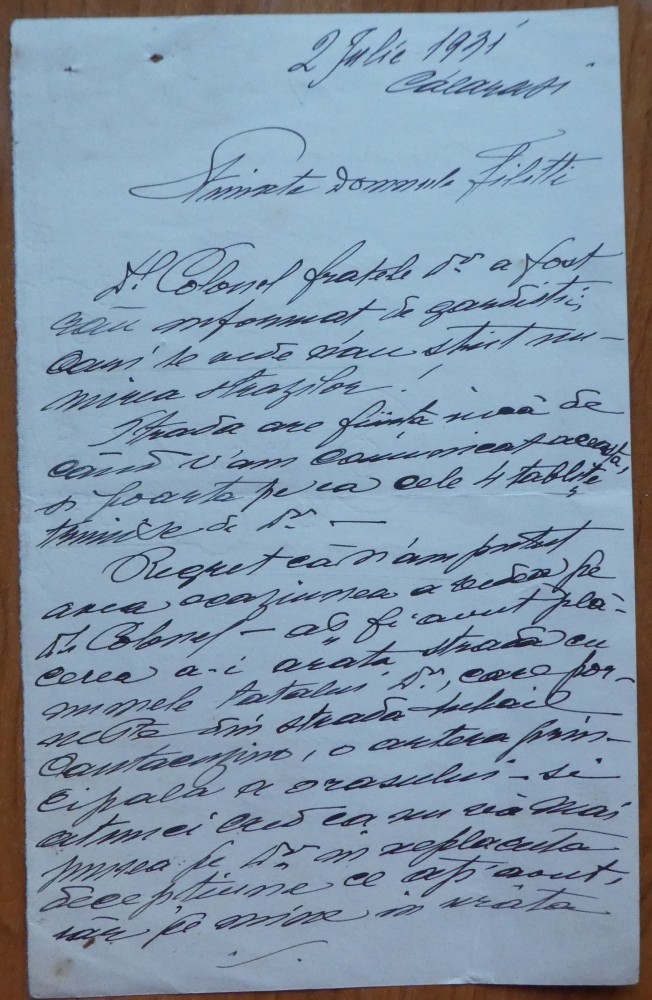 2 Julie 1931
Călărași
Stimate Domnule Filitti
Dl. Colonel fratele Dv. a fost
rău informat de gardisti,
cari se vede n'au stiut nu-
mirea strazilor!
Strada are fiinta încă de
când v'am comunicat aceasta,
si poarta pe ea cele 4 tablite
trimise de Dv. —
Regret că n'am putut
avea ocaziunea a vedea pe
Dl. Colonel – aș fi avut plă-
cerea a-i arata strada cu
numele tatalui Dv., care por-
neste din strada Mihail
Cantacuzino, o artera prin-
cipala a orasului – si
atunci cred ca nu vă mai
punea pe Dv. in neplacuta
deceptiune ce ați avut,
iar pe mine in urâta